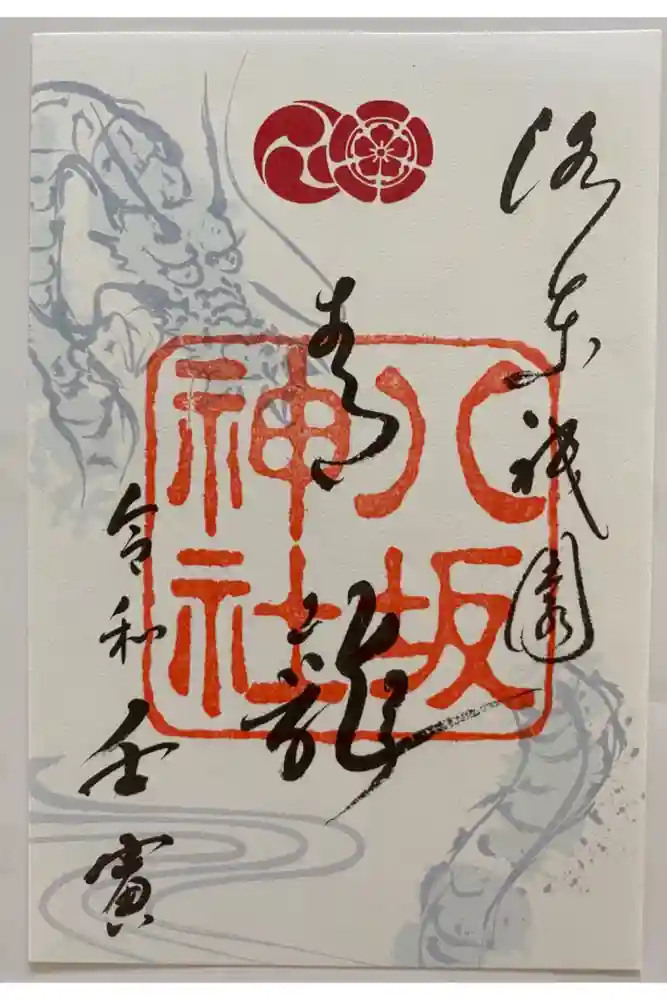 洛東祇園
青龍
八坂神社
令和壬寅